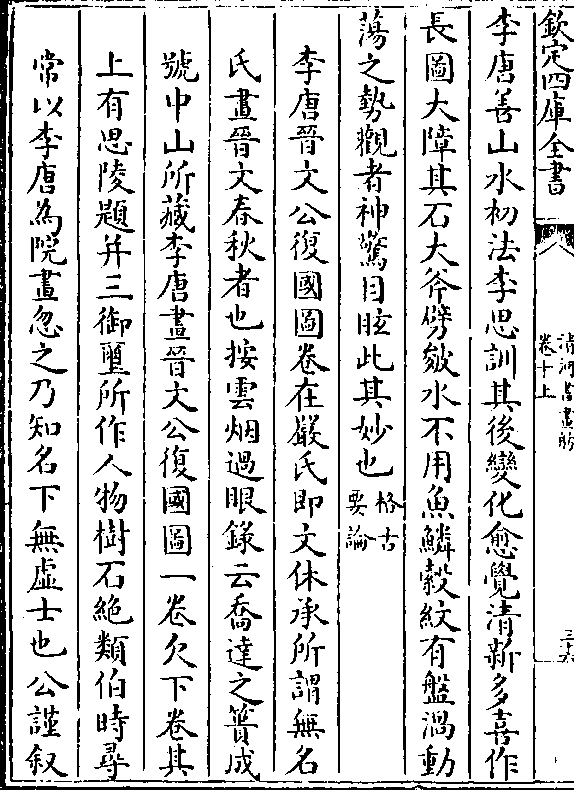 欽定四庫全書
清河書畫舫
卷十上
三十六
李唐善山水初法李思訓其後變化愈覺清新多喜作
長圖大障其石大斧劈皴水不用魚鱗縠紋有盤渦動
蕩之勢觀者神驚目眩此其妙也格古要論
李唐晉文公復國圖卷在嚴氏即文休承所謂無名
氏畫晉文春秋者也按雲烟過眼錄云喬達之簣成
號中山所藏李唐畫晉文公復國圖一卷欠下卷其
上有思陵題并三御璽所作人物樹石絶類伯時尋
常以李唐為院畫忽之乃知名下無虛士也公謹叙